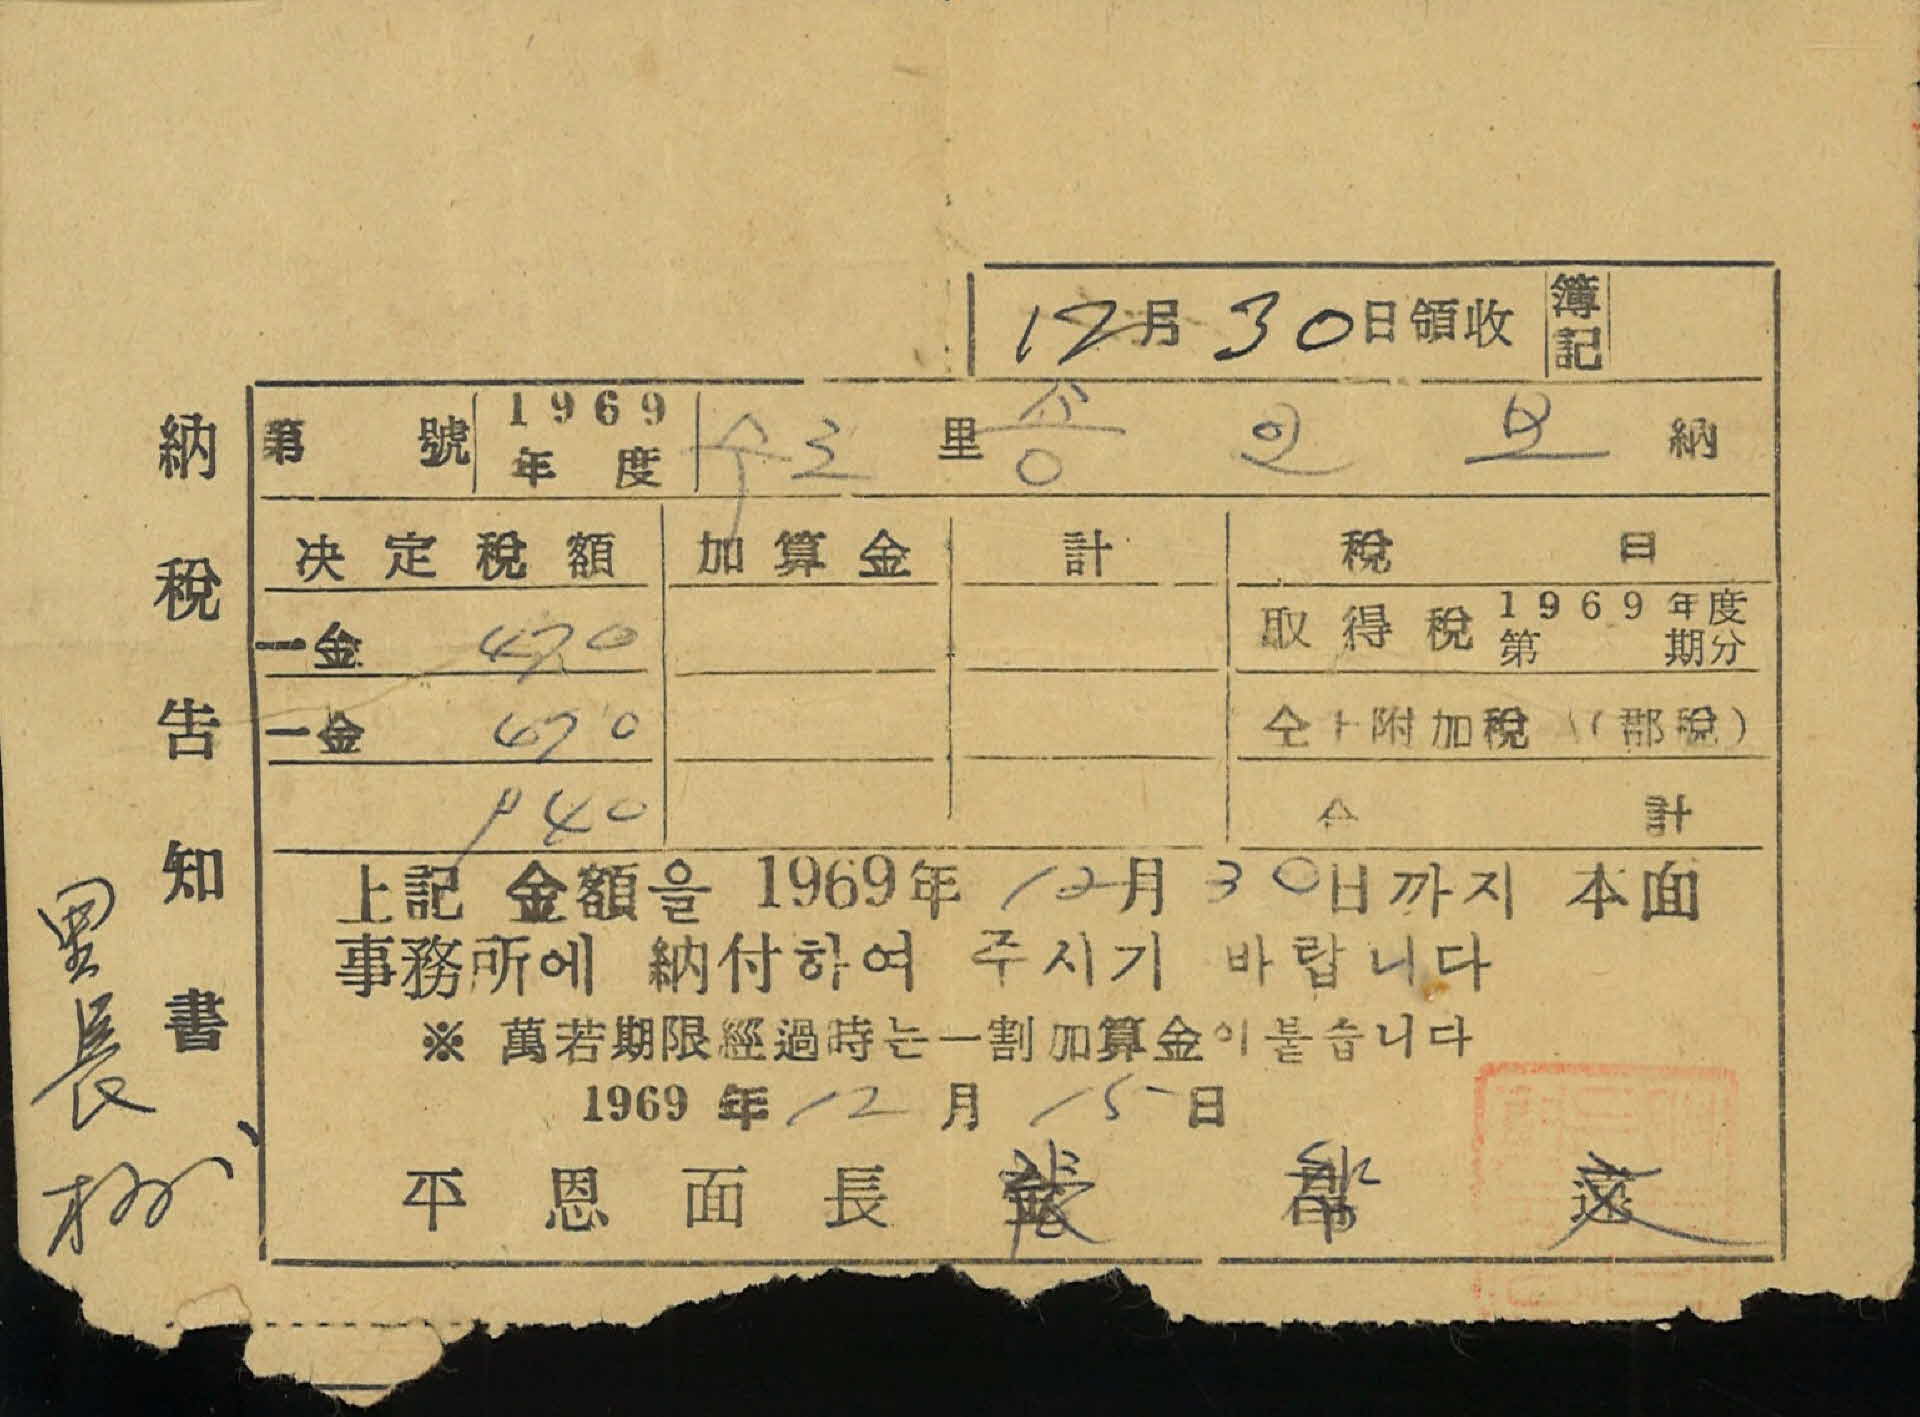 12月 30日領收 簿記
第 號 1969年度 수도里 송 인 보 納
納稅告知書
決定稅額 加算金 計 稅目
一金 470 取得稅 1969年度 第 期分
一金 470 仝上附加稅 (郡稅)
940 合計
上記 金額을 1969年 12月 30日까지 本面
事務所에 納付하여 주시기 바랍니다
※ 萬若期限經過時는一割加算金이붙습니다
1969年 12月 15日
平恩面長
里長